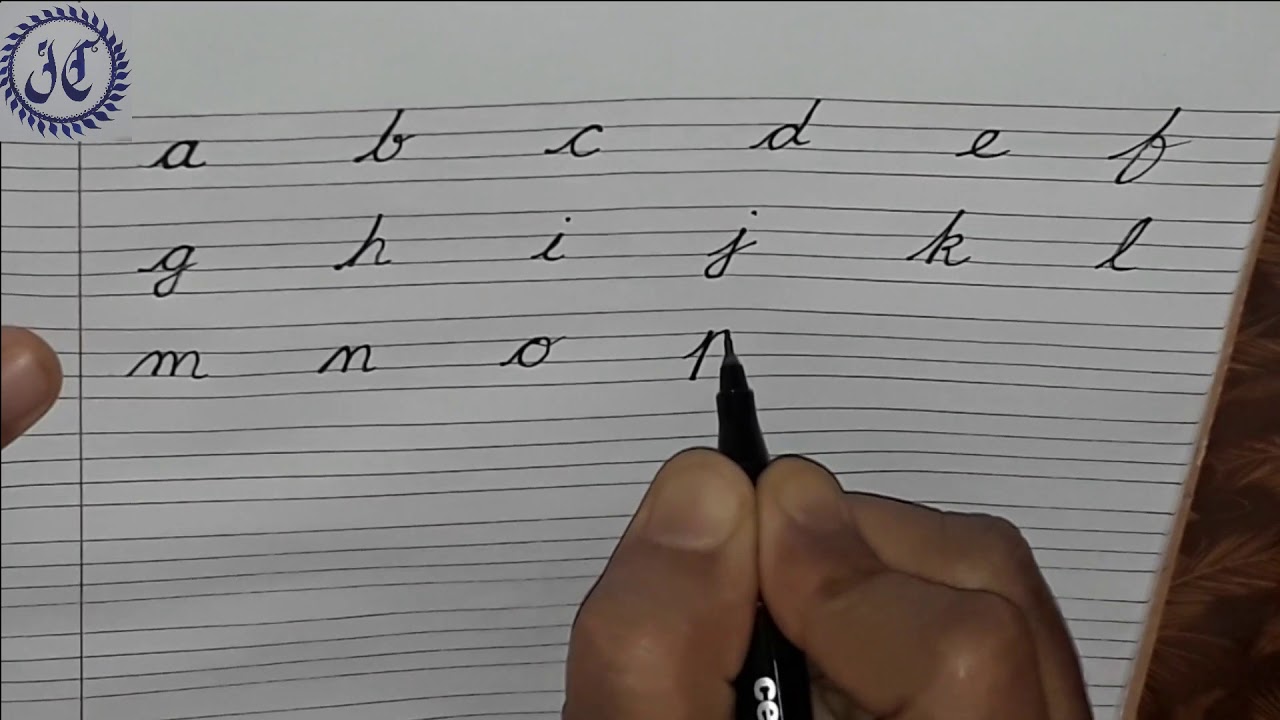 JC
a b c d e f
g h i j k l
m n o p
ce